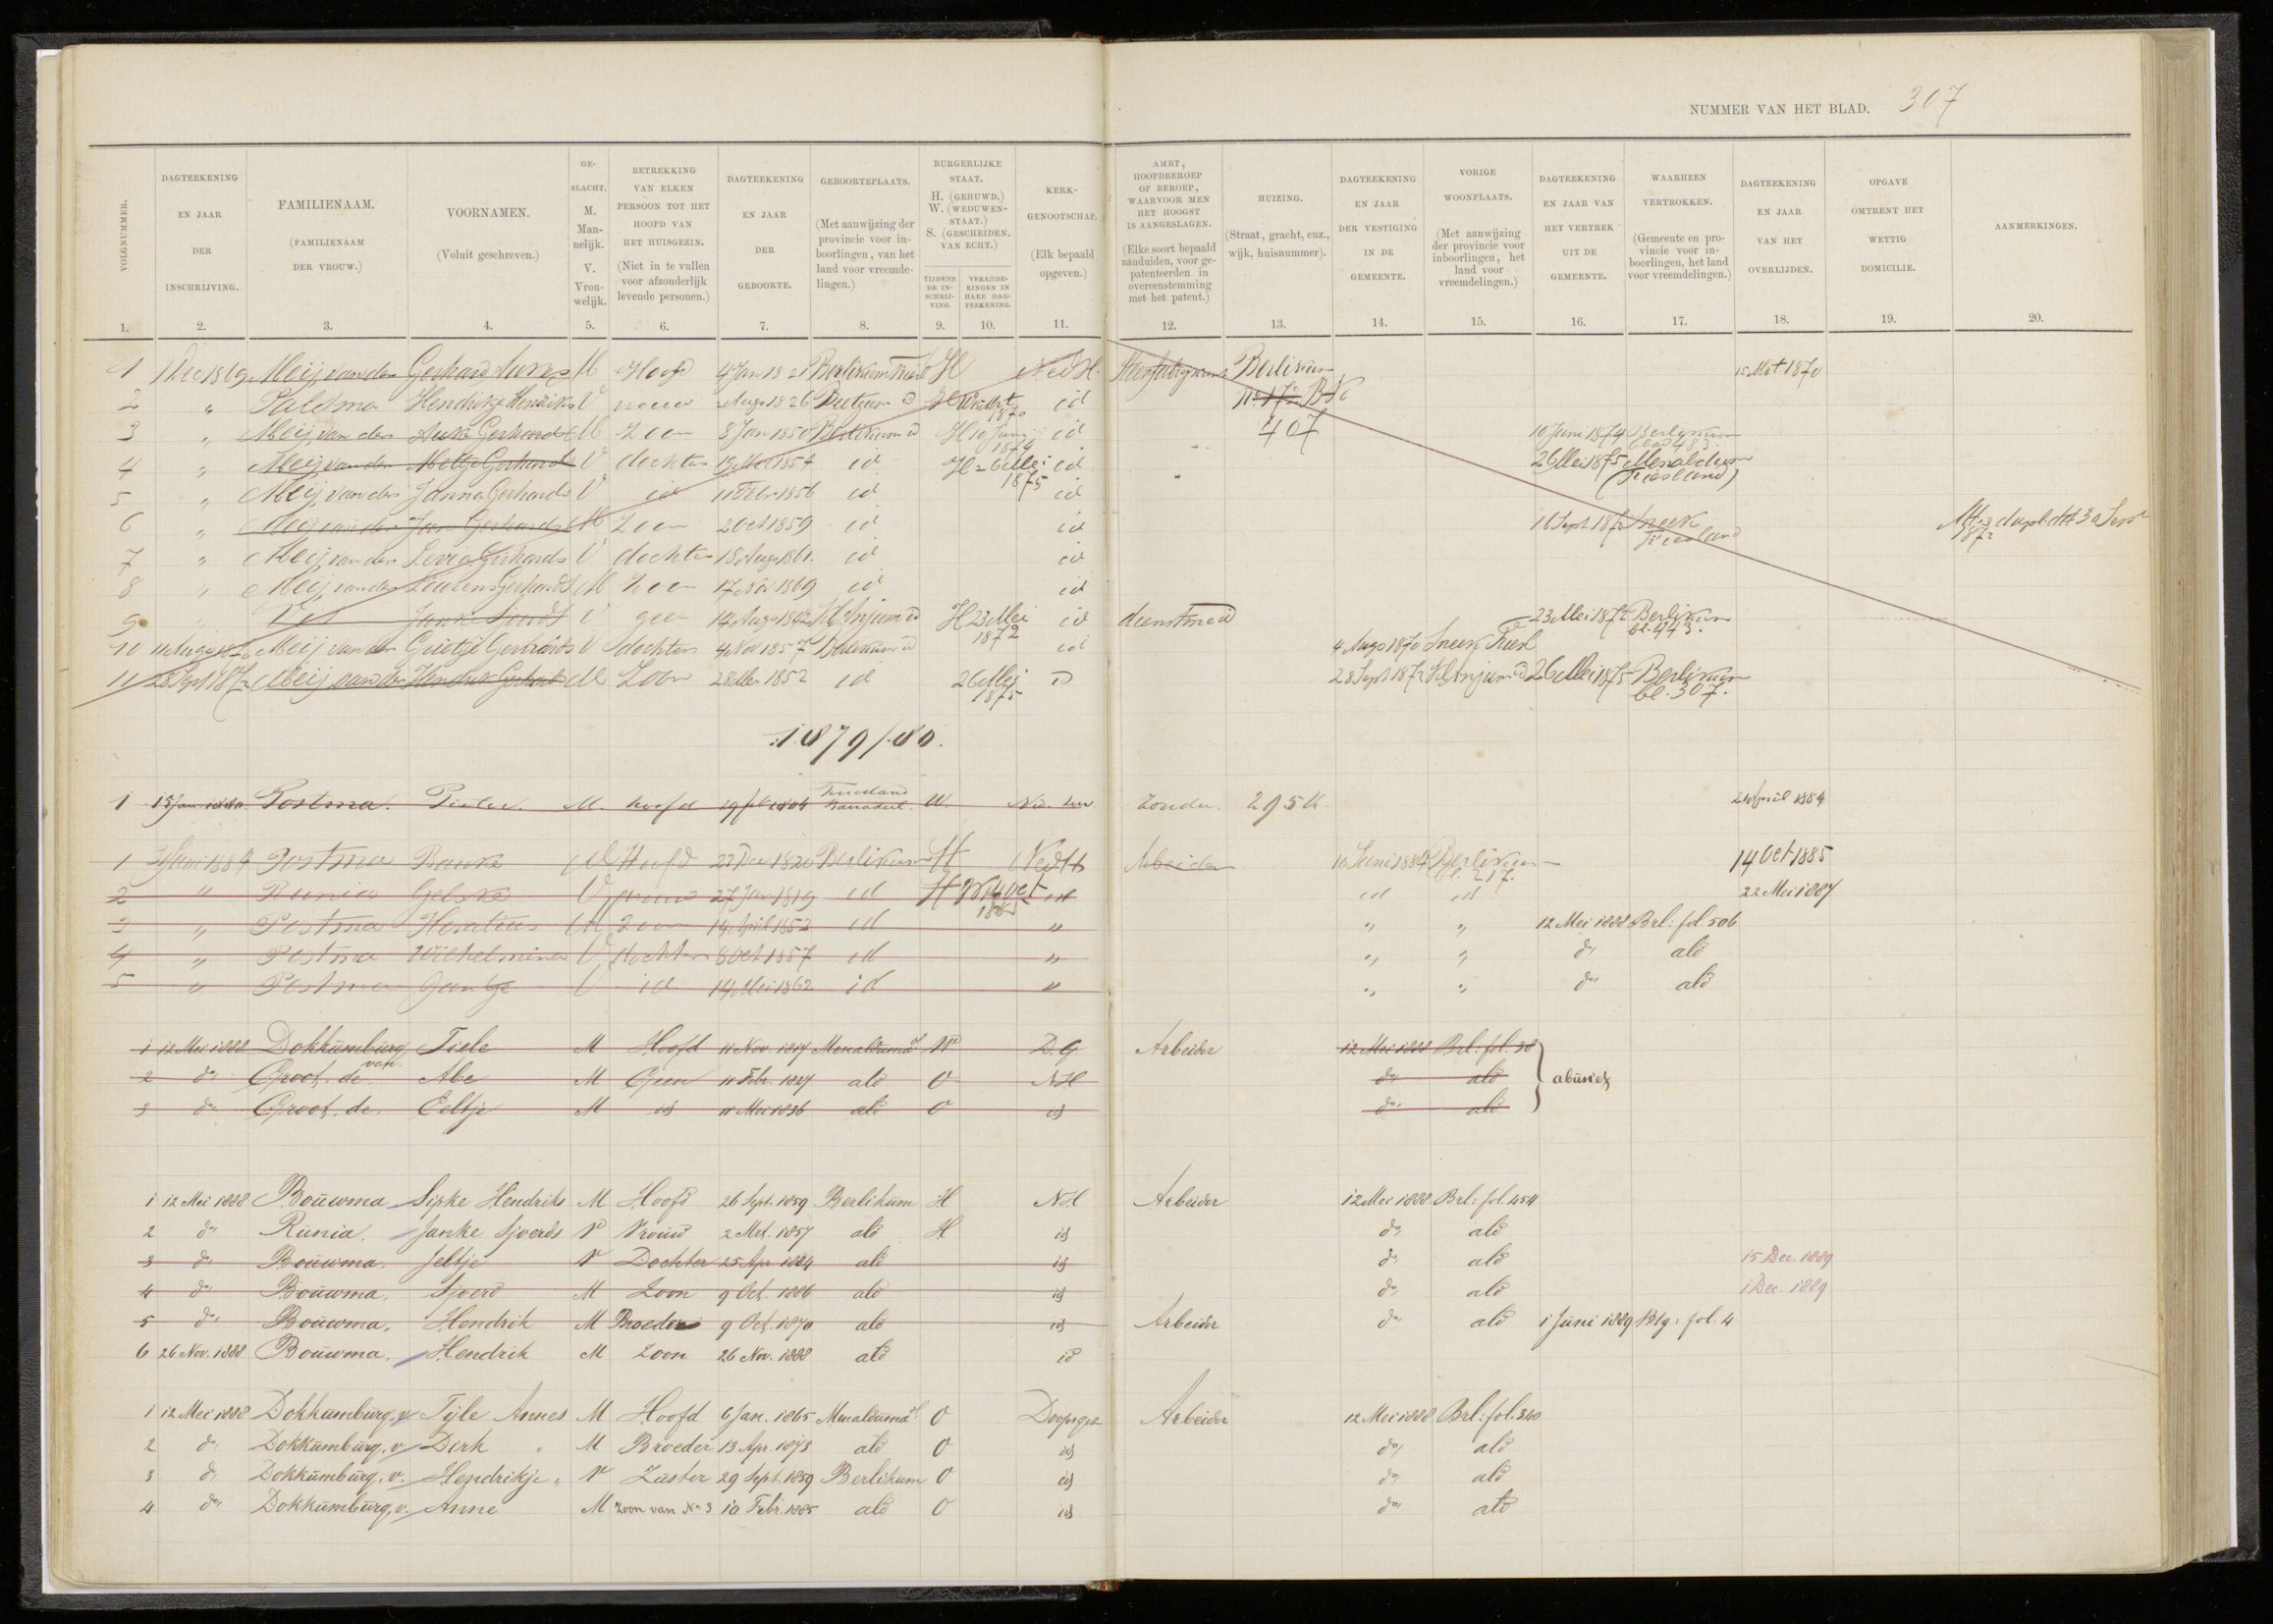 NUMMER VAN HET BLAD. 307
VOLGNUMMER. 1.
DAGTEEKENING EN JAAR DER INSCHRIJVING. 2.
FAMILIENAAM. (FAMILIENAAM DER VROUW.) 3.
VOORNAMEN. (Voluit geschreven.) 4.
GE-SLACHT. M. Man-nelijk. V. Vrou-welijk. 5.
BETREKKING VAN ELKEN PERSOON TOT HET HOOFD VAN HET HUISGEZIN. (Niet in te vullen voor afzonderlijk levende personen.) 6.
DAGTEEKENING EN JAAR DER GEBOORTE. 7.
GEBOORTEPLAATS. (Met aanwijzing der provincie voor in-boorlingen, van het land voor vreemde-lingen.) 8.
BURGERLIJKE STAAT. H. (GEHUWD.) W. (WEDUWEN-STAAT.) S. (GESCHEIDEN. VAN ECHT.)
TIJDENS DE IN-SCHRIJ-VING. 9.
VERANDE-RINGEN IN HARE DAG-TEEKENING. 10.
KERK-GENOOTSCHAP. (Elk bepaald opgeven.) 11.
AMBT, HOOFDBEROEP OF BEROEP, WAARVOOR MEN HET HOOGST IS AANGESLAGEN. (Elke soort bepaald aanduiden, voor ge-patenteerden in overeenstemming met het patent.) 12.
HUIZING. (Straat, gracht, enz., wijk, huisnummer). 13.
DAGTEEKENING EN JAAR DER VESTIGING IN DE GEMEENTE. 14.
VORIGE WOONPLAATS. (Met aanwijzing der provincie voor inboorlingen, het land voor vreemdelingen.) 15.
DAGTEEKENING EN JAAR VAN HET VERTREK UIT DE GEMEENTE. 16.
WAARHEEN VERTROKKEN. (Gemeente en pro-vincie voor in-boorlingen, het land voor vreemdelingen.) 17.
DAGTEEKENING EN JAAR VAN HET OVERLIJDEN. 18.
OPGAVE OMTRENT HET WETTIG DOMICILIE. 19.
AANMERKINGEN. 20.
1 1 Dec 1869 Meij, van der Gerhard M Hoofd 4 Jan 1821 Berlikum H Ned H. Berlikum 15 Mrt 1870
2 " Palsma Hendrikje Hendriks V vrouw Aug 1826 id H W 1870 id 407
3 " Meij, van der Auke Gerhards M Zoon 8 Jan 1850 Berlikum id H 10 Juni 1874 id 10 Juni 1874 Berlikum blad 483.
4 " Meij, van der Gerhards V dochter id H 26 Mei 1875 id 26 Mei 1875 Menaldum (Friesland)
5 " Meij, van der Janna Gerhards V id 11 Febr 1856 id id
6 " Meij van der Jan Gerhards M Zoon 2 Oct 1859 id id 16 Sept 1872 Sneek Friesland
7 " Meij, van der Gerhards V dochter 18 Aug 1861. id id
8 " Meij, van der Gerhards M Zoon 17 Nov 1869 id id
9 " V geen 14 Aug 1842 id H 23 Mei 1872 id dienstmeid 23 Mei 1872 Berlikum bl. 443.
10 Meij van der Grietje Gerhards V dochter 4 Nov 1857 Berlikum id id 4 Aug 1870 Sneek
11 28 Sept 1872 Meij van der Hendrik M Zoon 1852 id 26 Mei 1875 id 28 Sept 1872 26 Mei 1875 Berlikum bl. 307.
1879/80.
1 15 Jan 1880. Postma. Pieter. M. hoofd 1804 Friesland W. zonder. 295 K. April 1884
1 Juni 1884 Postma Bauke M Hoofd 27 Dec 1820 Berlikum H Ned H Arbeider 16 Juni 1884 Berlikum bl. 217. 14 Oct 1885
2 " Runia Gelske V vrouw 27 Jan 1819 id H W 14 Oct 1885 id id id 22 Mei 1887
3 " Postma Horatius M Zoon 14 April 1852 id " " " 12 Mei 1888 Brl: fol. 506
4 " Postma Wilhelmina V dochter 8 Oct 1857 id " " " do ald
5 " Postma Jantje V id 14 Mei 1862 id " " " do ald
1 12 Mei 1888 Dokkumburg van. Tiele M Hoofd 11 Nov. 1817 Menalduma W D.G Arbeider 12 Mei 1888 Brl: fol. 38
2 do Groot, de. Abe M Geen 11 Febr. 1827 ald O NH do ald abusief
3 do Groot, de. Eeltje M id 11 Mei 1836 ald O id do ald
1 12 Mei 1888 Bouwma Sipke Hendriks M Hoofd 26 Sept. 1859 Berlikum H NH Arbeider 12 Mei 1888 Brl: fol. 454
2 do Runia. Janke Sjoerds V Vrouw 2 Mrt. 1857 ald H id do ald
3 do Bouwma. Jeltje V Dochter 25 Apr 1884 ald id do ald 15 Dec. 1889
4 do Bouwma. Sjoerd M Zoon 9 Oct. 1886 ald id do ald 1 Dec. 1889
5 do Bouwma. Hendrik M Broeder 9 Oct. 1870 ald id Arbeider do ald 1 Juni 1889 Blg: fol. 4
6 26 Nov. 1888 Bouwma. Hendrik M Zoon 26 Nov. 1888 ald id
1 12 Mei 1888 Dokkumburg, v. Tijle Annes M Hoofd 6 Jan. 1865 Menalduma O Doopsgez Arbeider 12 Mei 1888 Brl: fol. 340
2 do Dokkumburg, v. Dirk " M Broeder 13 Apr. 1873 ald O id do ald
3 do Dokkumburg, v. Hendrikje " V Zuster 29 Sept. 1859 Berlikum O id do ald
4 do Dokkumburg, v. Anne M Zoon van No 3 10 Febr. 1885 ald O id do ald